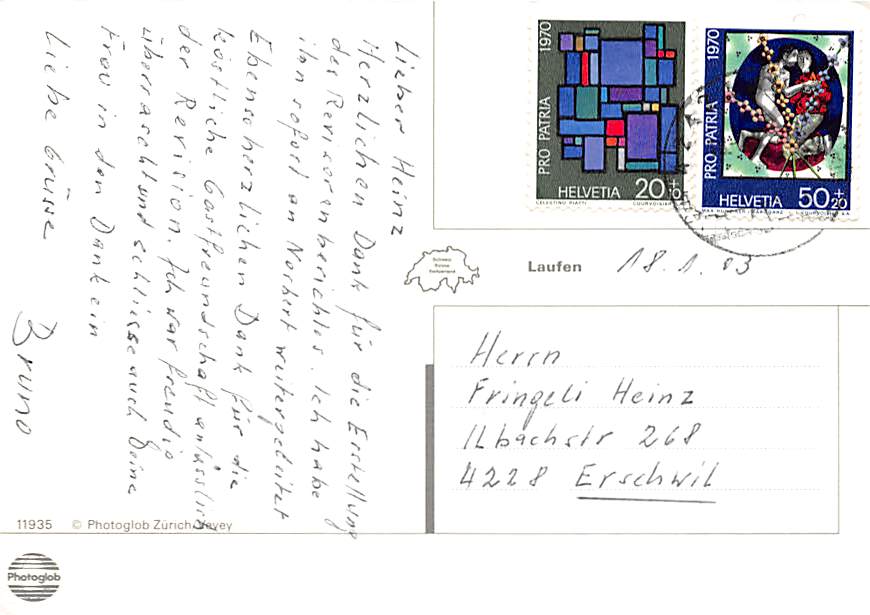 Lieber Heinz
Herzlichen Dank für die Erstellung
des Revisorenberichtes. Ich habe
ihn sofort an Norbert weitergeleitet
Ebenso herzlichen Dank für die
köstliche Gastfreundschaft anlässlich
der Revision. Ich war freudig
überrascht und schliesse auch Deine
Frau in den Dank ein
Liebe Grüsse
Bruno
PRO PATRIA 1970
HELVETIA 20+10
CELESTINO PIATTI COURVOISIER
PRO PATRIA 1970
HELVETIA 50+20
Schweiz
Suisse
Switzerland
Laufen 18.1.83
Herrn
Fringeli Heinz
Ilbachstr 268
4228 Erschwil
11935 © Photoglob Zürich-Vevey
Photoglob